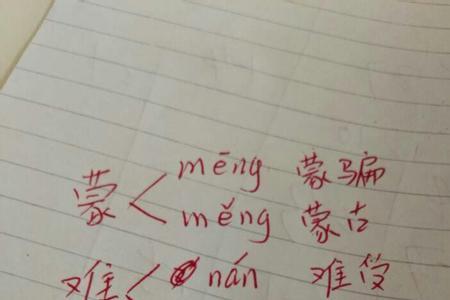 mēng 蒙骗
蒙 <
měng 蒙古
难 < nán 难